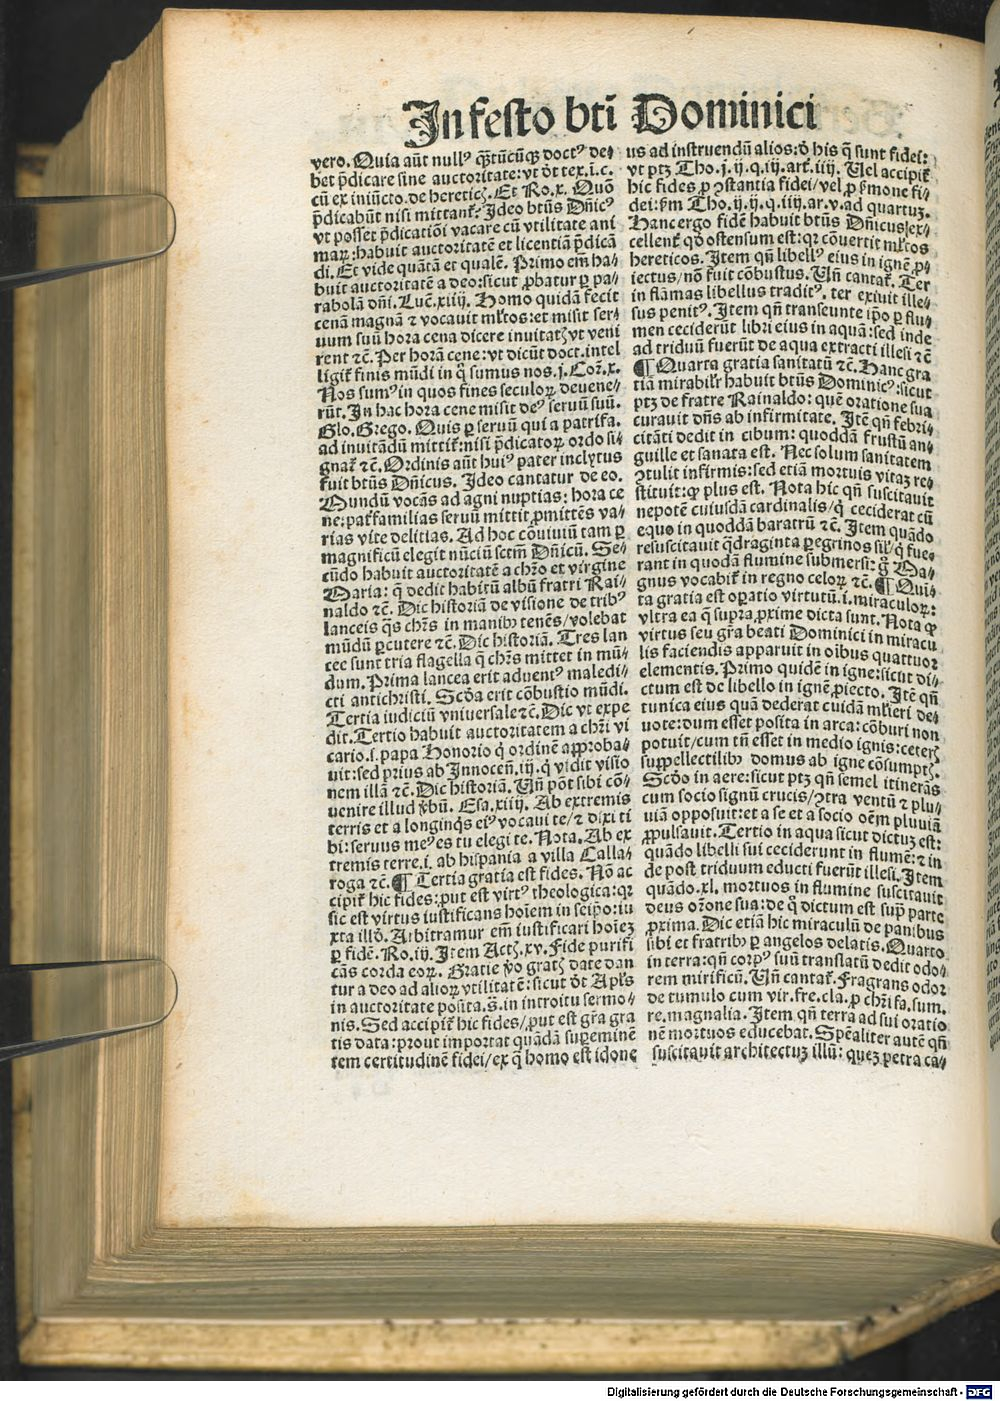 In festo bti Dominici
vero. Quia aūt nullꝰ q̄tūcūqꝫ doctꝰ de⸗
bet p̄dicare sine auctoritate: vt dt̄ tex. i. c.
cū ex iniūcto. de hereticꝭ. Et Ro. x. Quō
p̄dicabūt nisi mittant̉. Ideo btūs Dn̄icꝰ
vt posset p̄dicatiōi vacare cū vtilitate ani
maꝝ: habuit auctoritatē et licentiā p̄dicā
di. Et vide quātā et qualē. Primo em̄ ha⸗
buit auctoritatē a deo: sicut ꝓbatur ꝑ pa⸗
rabolā dn̄i. Luc̄. xiiij. Homo quidā fecit
cenā magnā ⁊ vocauit ml̓tos: et misit ser⸗
uum suū hora cena dicere inuitatꝭ vt veni
rent ⁊c̄. Per horā cene: vt dicūt doct. intel
ligit̉ finis mūdi in q̄ sumus nos. j. Cor̄. x.
Nos sumꝰ in quos fines seculoꝝ deuene⸗
rūt. In hac hora cene misit deꝰ seruū suū.
Glo. Grego. Quis ꝑ seruū qui a patrifa.
ad inuitādū mittit̉: nisi p̄dicatoꝝ ordo si⸗
gnat̉ ⁊c̄. Ordinis aūt huiꝰ pater inclytus
fuit btūs Dn̄icus. Ideo cantatur de eo.
Mundū vocās ad agni nuptias: hora ce
ne: pat̉familias seruū mittit ꝓmittēs va⸗
rias vite delitias. Ad hoc cōuiuiū tam ꝑ
magnificū elegit nūciū sctm̄ Dn̄icū. Se⸗
cūdo habuit auctoritatē a chr̄o et virgine
Maria: q̄ dedit habitū albū fratri Rai⸗
naldo ⁊c̄. Dic historiā de visione de tribꝰ
lanceis q̄s chr̄s in manibꝰ tenēs/ volebat
mūdū ꝑcutere ⁊c̄. Dic historiā. Tres lan
cee sunt tria flagella q̄ chr̄s mittet in mū⸗
dum. Prima lancea erit aduentꝰ maledi⸗
cti antichristi. Scd̄a erit cōbustio mūdi.
Tertia iudiciū vniuersale ⁊c̄. Dic vt expe
dit. Tertio habuit auctoritatem a chr̄i vi
cario. i. papa Honorio q̓ ordinē approba⸗
uit: sed prius ab Innocen̄. iij. q̓ vidit visio
nem illā ⁊c̄. Dic historiā. Vn̄ pōt sibi cō⸗
uenire illud v̓bū. Esa. xiiij. Ab extremis
terris et a longinq̓s eiꝰ vocaui te/ ⁊ dixi ti
bi: seruus meꝰ es tu elegi te. Nota. Ab ex
tremis terre. i. ab hispania a villa Calla⸗
roga ⁊c̄. ¶ Tertia gratia est fides. Nō ac
cipit̉ hic fides: ꝓut est virtꝰ theologica: qꝛ
sic est virtus iustificans hoīem in seipō: iu
xta illd̓. Arbitramur em̄ iustificari hoīeꝫ
ꝑ fidē. Ro. iij. Item Actꝭ. xv. Fide purifi
cās corda eoꝝ. Gratie v̓o gratꝭ date dan
tur a deo ad alioꝝ vtilitatē: sicut dt̄ Apl̄s
in auctoritate posita. s̄. in introitu sermo⸗
nis. Sed accipit̉ hic fides/ ꝓut est gr̄a gra
tis data: prout importat quādā supeminē
tem certitudinē fidei/ ex q̄ homo est idone
us ad instruendū alios: d̓ his q̄ sunt fidei:
vt ptꝫ Tho. j. ij. q. iij. art̄. iiij. Vel accipit̉
hic fides ꝓ ꝯstantia fidei/ vel ꝓ s̓mone fi⸗
dei: s̓m Tho. ij. ij. q. iiij. ar. v. ad quartuꝫ.
Hanc ergo fidē habuit btūs Dn̄icus/ ex⸗
cellent̉ qd̓ ostensum est: qꝛ cōuertit ml̓tos
hereticos. Item qn̄ libellꝰ eius in ignē ꝓ⸗
iectus/ nō fuit cōbustus. Vn̄ cantat̉. Ter
in flāmas libellus traditꝰ. ter exiuit ille⸗
sus penitꝰ. Item qn̄ transeunte ip̄o ꝑ flu⸗
men ceciderūt libri eius in aquā: sed inde
ad triduū fuerūt de aqua extracti illesi ⁊c̄
¶ Quarta gratia sanitatū ⁊c̄. Hanc gra
tiā mirabilr̓ habuit btūs Dominicꝰ: sicut
ptꝫ de fratre Rainaldo: quē oratione sua
curauit dn̄s ab infirmitate. Itē qn̄ febri⸗
citāti dedit in cibum: quoddā frustū an⸗
guille et sanata est. Nec solum sanitatem
ꝯtulit infirmis: sed etiā mortuis vitaꝫ re⸗
stituit: qꝙ plus est. Nota hic qn̄ suscitauit
nepotē cuiusdā cardinalis/ q̓ ceciderat cū
equo in quoddā baratrū ⁊c̄. Item quādo
resuscitauit q̄draginta ꝑegrinos sil̓/ q̓ fue⸗
rant in quodā flumine submersi: g̊ Ma⸗
gnus vocabit̉ in regno celoꝝ ⁊c̄. ¶ Quī⸗
ta gratia est oꝑatio virtutū. i. miraculoꝝ:
vltra ea q̄ supra ꝓxime dicta sunt. Nota ꝙ
virtus seu gr̄a beati Dominici in miracu
lis faciendis apparuit in oībus quattuor
elementis. Primo quidē in igne: sicut di⸗
ctum est de libello in ignē ꝓiecto. Itē qn̄
tunica eius quā dederat cuidā ml̓ieri de⸗
uote: dum esset posita in arca: cōburi non
potuit/ cum tn̄ esset in medio ignis: ceterꝭ
suppellectilibꝰ domus ab igne cōsumptꝭ.
Scd̓o in aere: sicut ptꝫ qn̄ semel itinerās
cum socio signū crucis/ ꝯtra ventū ⁊ plu⸗
uiā opposuit: et a se et a socio oēm pluuiā
ꝓpulsauit. Tertio in aqua sicut dictuꝫ est:
quādo libelli sui ceciderunt in flumē: ⁊ in
de post triduum educti fuerūt illesi. Item
quādo. xl. mortuos in flumine suscitauit
deus or̄one sua: de q̓ dictum est sup̄ parte
ꝓxima. Dic etiā hic miraculū de panibus
sibi et fratribꝰ ꝑ angelos delatis. Quarto
in terra: qn̄ corpꝰ suū translatū dedit odo⸗
rem mirificū. Vn̄ cantat̉. Fragrans odor
de tumulo cum vir. fre. cla. ꝓ chr̄i fa. sum.
re. magnalia. Item qn̄ terra ad sui oratio
nē mortuos educebat. Spēaliter autē qn̄
suscitauit architectuꝫ illū: queꝫ petra ca⸗
Digitalisierung gefördert durch die Deutsche Forschungsgemeinschaft - DFG